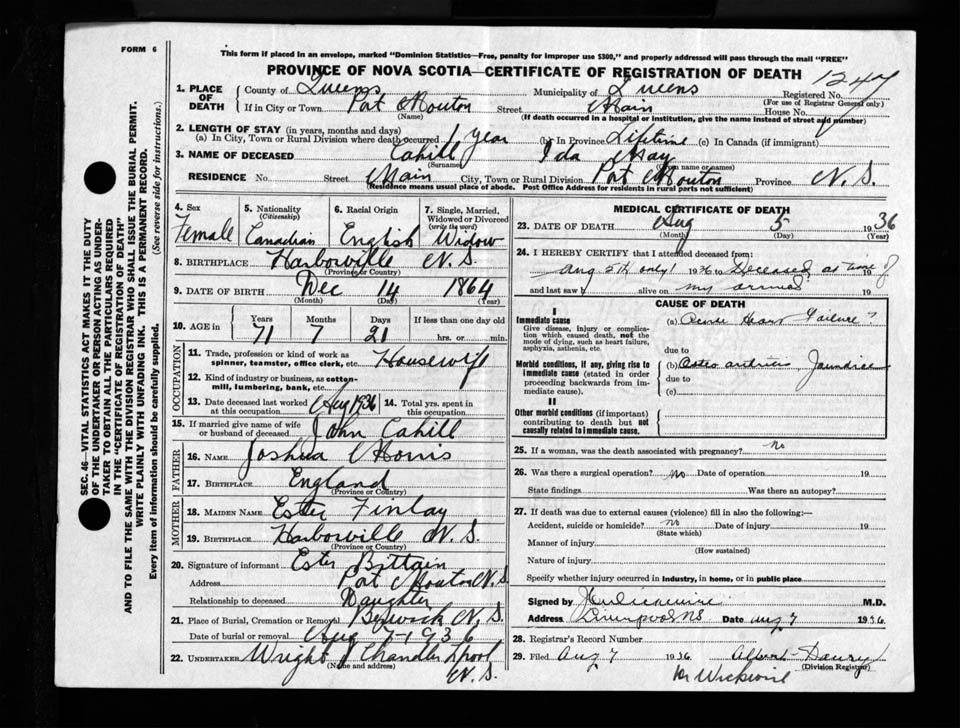 FORM 6
This form if placed in an envelope, marked "Dominion Statistics—Free, penalty for improper use $300," and properly addressed will pass through the mail "FREE"
PROVINCE OF NOVA SCOTIA—CERTIFICATE OF REGISTRATION OF DEATH
1247
1. PLACE OF DEATH County of Queens Municipality of Queens Registered No.
(For use of Registrar General only)
If in City or Town Port Mouton Street Main House No.
(Name) (If death occurred in a hospital or institution, give the name instead of street and number)
2. LENGTH OF STAY (in years, months and days)
(a) In City, Town or Rural Division where death occurred 1 year (b) In Province Lifetime (c) In Canada (if immigrant)
3. NAME OF DECEASED Cahill Ida May
(Surname) (Given name or names)
RESIDENCE No. Street Main City, Town or Rural Division Port Mouton Province N.S.
(Residence means usual place of abode. Post Office Address for residents in rural parts not sufficient)
4. Sex Female
5. Nationality (Citizenship) Canadian
6. Racial Origin English
7. Single, Married, Widowed or Divorced (write the word) Widow
8. BIRTHPLACE Harborville N.S.
(Province or Country)
9. DATE OF BIRTH Dec 14 1864
(Month) (Day) (Year)
10. AGE in Years 71 Months 7 Days 21 If less than one day old hrs. or min.
OCCUPATION
11. Trade, profession or kind of work as spinner, teamster, office clerk, etc. Housewife
12. Kind of industry or business, as cotton-mill, lumbering, bank, etc.
13. Date deceased last worked at this occupation Aug 1936
14. Total yrs. spent in this occupation
15. If married give name of wife or husband of deceased John Cahill
FATHER
16. Name Joshua
17. Birthplace England
(Province or Country)
MOTHER
18. MAIDEN NAME Ester Finlay
19. BIRTHPLACE Harborville N.S.
(Province or Country)
20. Signature of informant Ester Brittain
Address Port Mouton N.S.
Relationship to deceased Daughter
21. Place of Burial, Cremation or Removal Berwick N.S.
Date of burial or removal Aug 7-1936
22. UNDERTAKER Wright Chandler Lpool
(Name and address) N.S.
MEDICAL CERTIFICATE OF DEATH
23. DATE OF DEATH Aug 5 1936
(Month) (Day) (Year)
24. I HEREBY CERTIFY that I attended deceased from:
Aug 5th only 1936 to Deceased at time of 19
and last saw h alive on my arrival 19
CAUSE OF DEATH
I
Immediate cause
Give disease, injury or complication which caused death, not the mode of dying, such as heart failure, asphyxia, asthenia, etc.
(a) Acute Heart Failure?
due to
Morbid conditions, if any, giving rise to immediate cause (stated in order proceeding backwards from immediate cause).
(b) Osteo arthritis Jaundice
due to
(c)
II
Other morbid conditions (if important) contributing to death but not causally related to immediate cause.
25. If a woman, was the death associated with pregnancy? no
26. Was there a surgical operation? no Date of operation 19
State findings Was there an autopsy?
27. If death was due to external causes (violence) fill in also the following:—
Accident, suicide or homicide? no Date of injury 19
(State which)
Manner of injury
(How sustained)
Nature of injury
Specify whether injury occurred in industry, in home, or in public place
Signed by M.D.
Address Liverpool NS Date Aug 7 1936
28. Registrar's Record Number
29. Filed Aug 7 1936 Albert
(Division Registrar)
Dr Wickwire
SEC. 46—VITAL STATISTICS ACT MAKES IT THE DUTY
OF THE UNDERTAKER OR PERSON ACTING AS UNDER-
TAKER TO OBTAIN ALL THE PARTICULARS REQUIRED
IN THE "CERTIFICATE OF REGISTRATION OF DEATH"
AND TO FILE THE SAME WITH THE DIVISION REGISTRAR WHO SHALL ISSUE THE BURIAL PERMIT.
WRITE PLAINLY WITH UNFADING INK. THIS IS A PERMANENT RECORD.
Every item of information should be carefully supplied.
(See reverse side for instructions.)